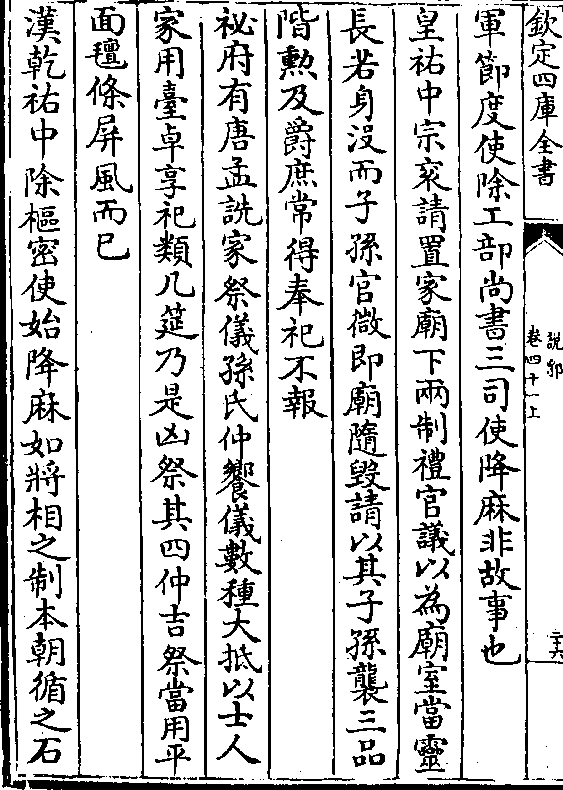 欽定四庫全書
說郛
卷四十一上
三六
軍節度使除工部尚書三司使降麻非故事也
皇祐中宗衮請置家廟下兩制禮官議以為廟室當靈
長若身没而子孫官微即廟隨毀請以其子孫襲三品
階勲及爵庶常得奉祀不報
祕府有唐孟詵家祭儀孫氏仲饗儀數種大抵以士人
家用臺卓享祀類几筵乃是凶祭其四仲吉祭當用平
面氊條屏風而已
漢乾祐中除樞密使始降麻如將相之制本朝循之石